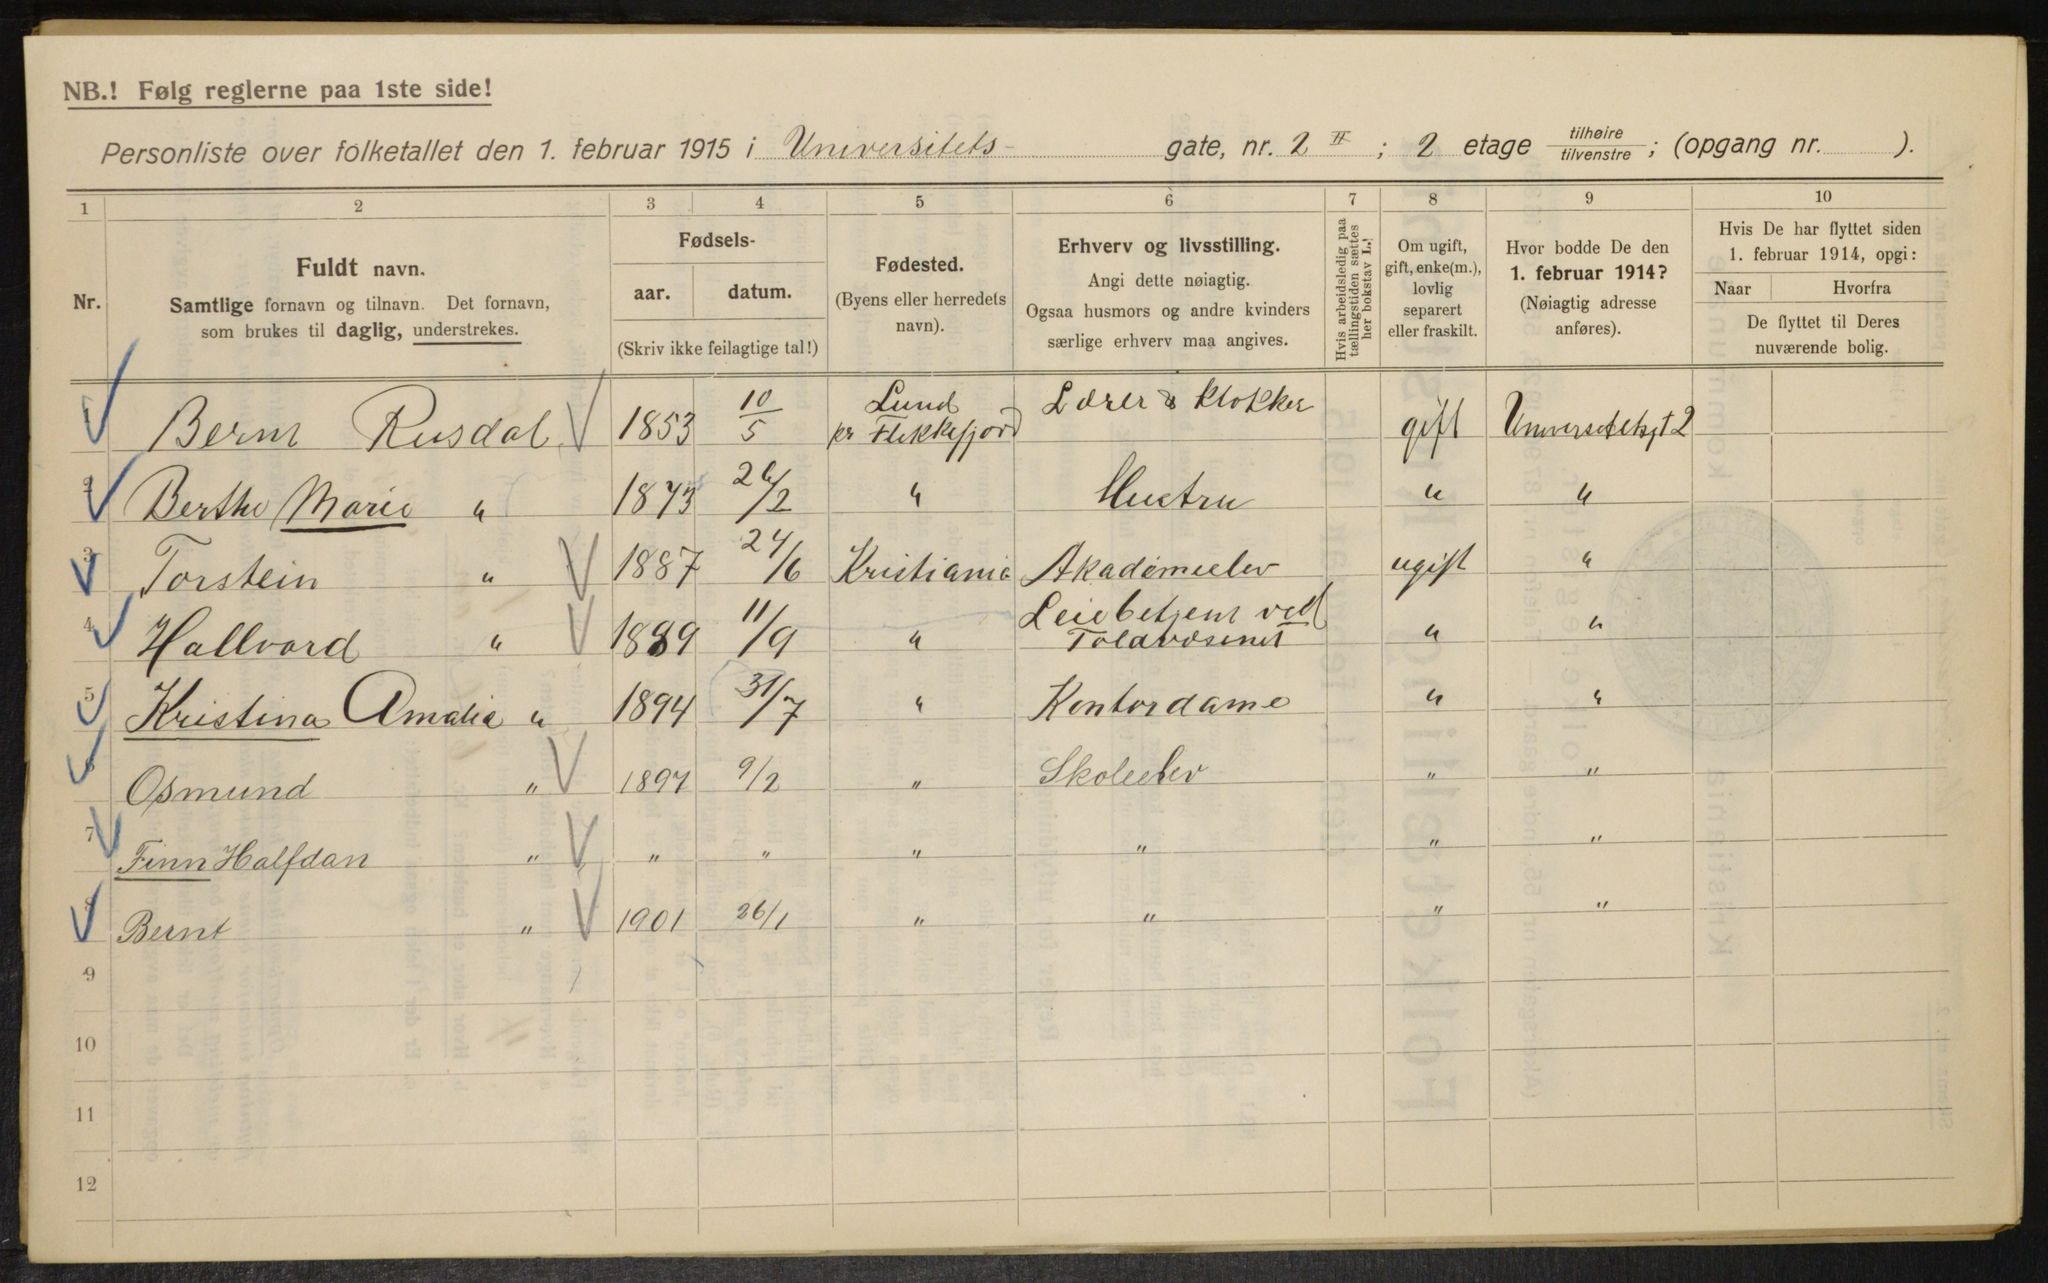 NB.! Følg reglerne paa 1ste side!
Personliste over folketallet den 1. februar 1915 i Universitets- gate, nr. 2 II ; 2 etage tilhøire / tilvenstre ; (opgang nr. ).
1 2 3 4 5 6 7 8 9 10
Nr.
Fuldt navn.
Samtlige fornavn og tilnavn. Det fornavn,
som brukes til daglig, understrekes.
Fødsels-
aar. datum.
(Skriv ikke feilagtige tal!)
Fødested.
(Byens eller herredets
navn).
Erhverv og livsstilling.
Angi dette nøiagtig.
Ogsaa husmors og andre kvinders
særlige erhverv maa angives.
Hvis arbeidsledig paa
tællingstiden sættes
her bokstav L.
Om ugift,
gift, enke(m.),
lovlig
separert
eller fraskilt.
Hvor bodde De den
1. februar 1914?
(Nøiagtig adresse
anføres).
Hvis De har flyttet siden
1. februar 1914, opgi:
Naar Hvorfra
De flyttet til Deres
nuværende bolig.
1 Bernt Rusdal 1853 10/5 Lund pr Flekkefjord Lærer & Klokker gift Universitetsgt 2
2 Berthe Marie " 1873 26/2 " Hustru " "
3 Torstein " 1887 24/6 Kristiania Akademielev ugift "
4 Hallvard " 1889 11/9 " Leiebetjent ved Toldvæsenet " "
5 Kristina Amalia " 1894 31/7 " Kontordame " "
6 Osmund " 1897 9/2 " Skoleelev " "
7 Finn Halfdan " " " " " " "
8 Bernt " 1901 26/1 " " " "
9
10
11
12